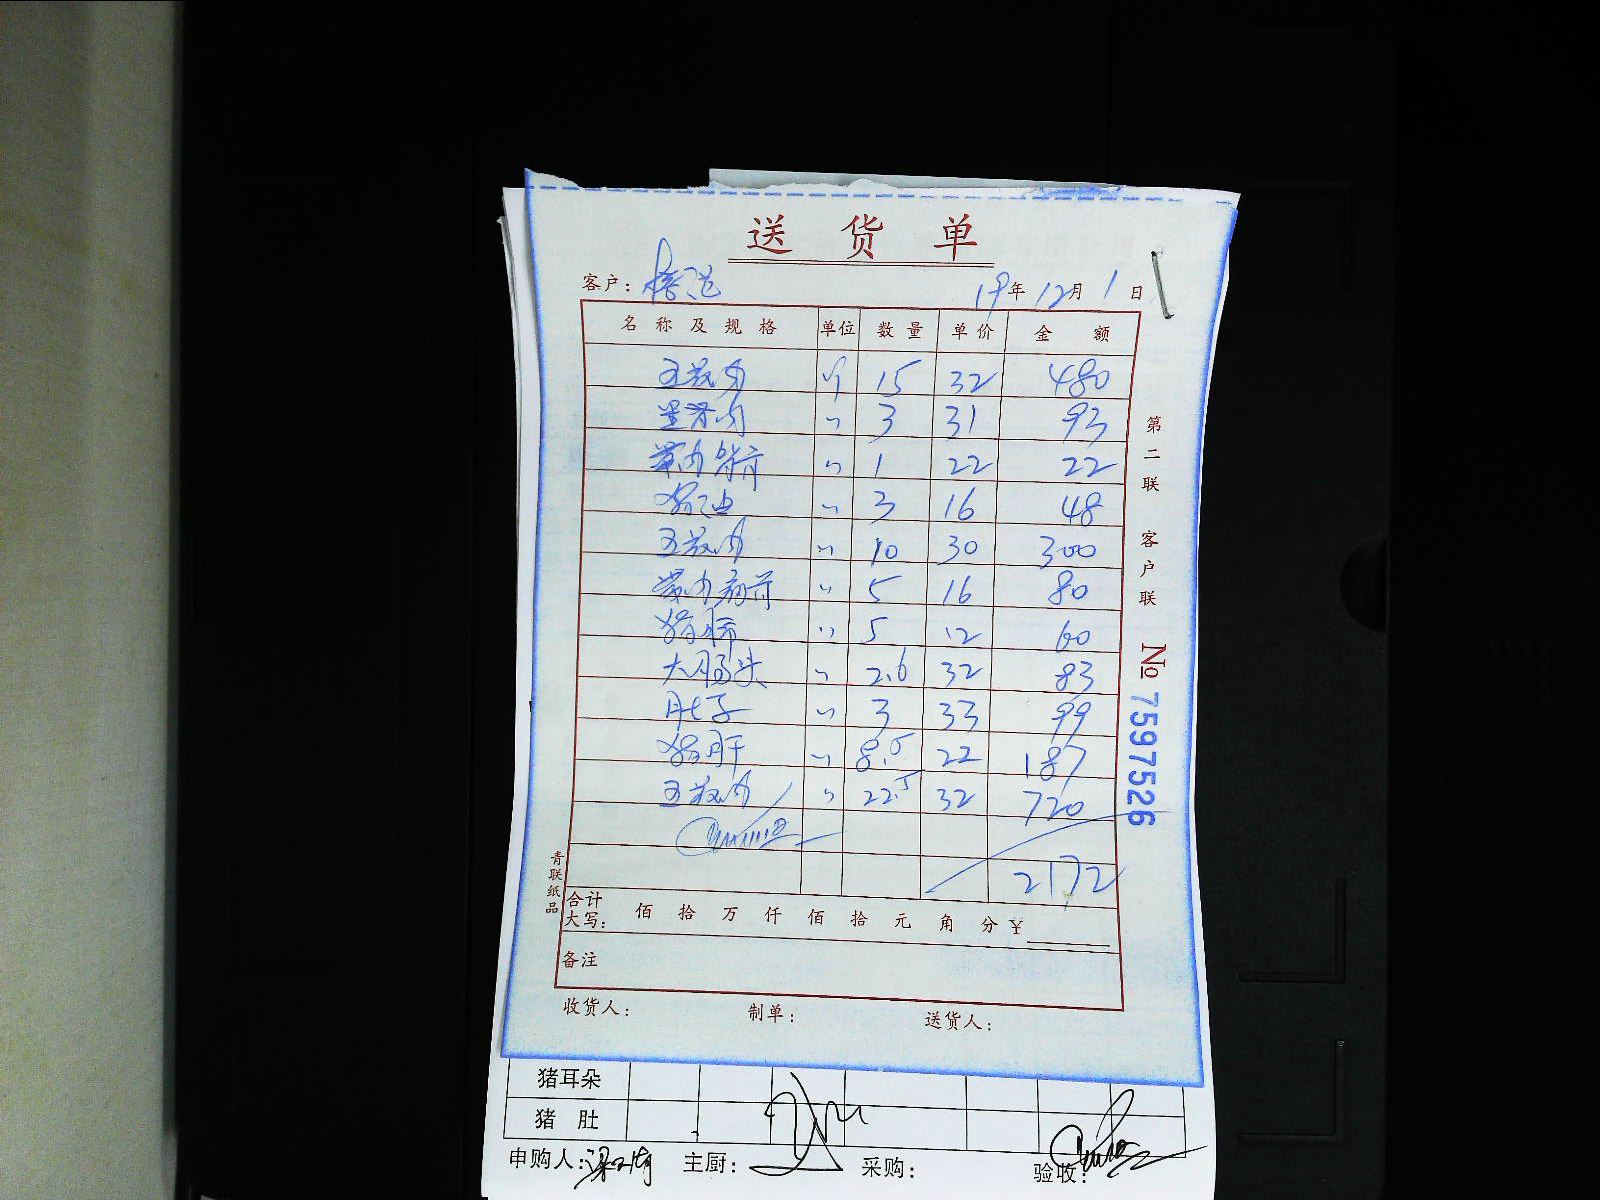 送货单
客户： 19年12月1日
名称及规格 单位 数量 单价 金额
五花肉 斤 15 32 480
里脊肉 〃 3 31 93
带肉 〃 1 22 22
猪油 〃 3 16 48
五花肉 〃 10 30 300
带肉 〃 5 16 80
猪肺 〃 5 12 60
大肠头 〃 2.6 32 83
肚子 〃 3 33 99
猪肝 〃 8.5 22 187
五花肉 〃 22.5 32 720
2172
合计大写： 佰 拾 万 仟 佰 拾 元 角 分 ￥
备注
收货人： 制单： 送货人：
第二联 客户联
No 7597526
青联纸品
猪耳朵
猪肚
申购人： 主厨： 采购： 验收：